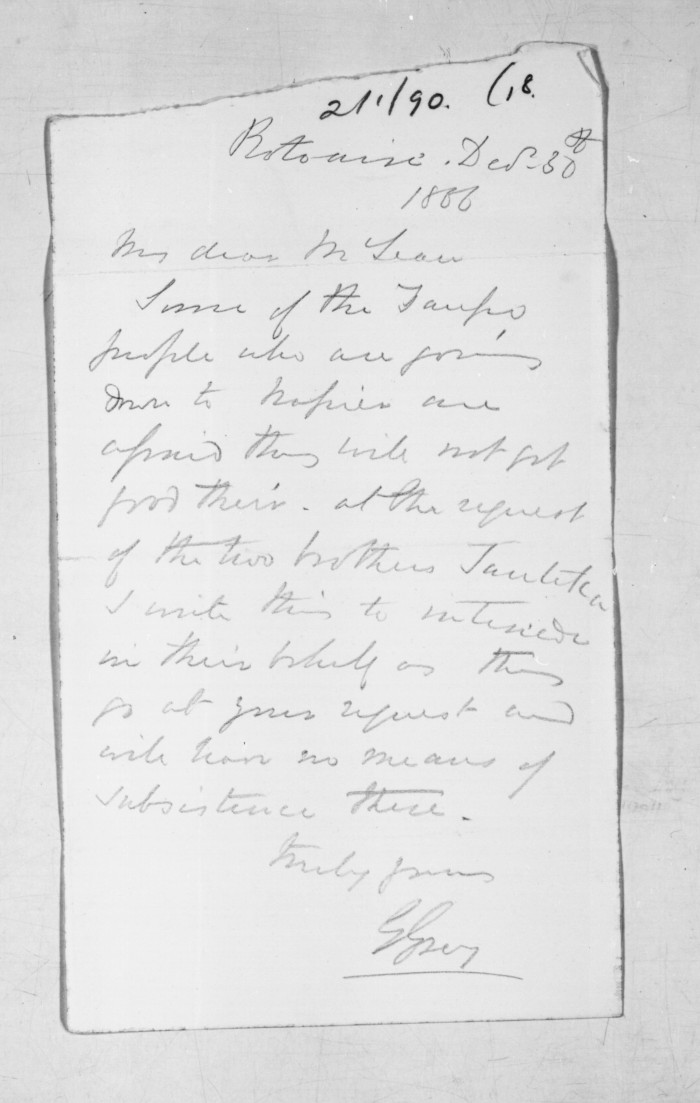 21/1/90. (18.
Rotoaira. Decr 30th
1866
My dear McLean
Some of the Taupo
people who are going
down to Napier are
afraid they will not get
food there. at the request
of the two brothers
I write this to intercede
in their behalf as they
go at your request and
will have no means of
subsistence there.
truly yours
G Grey